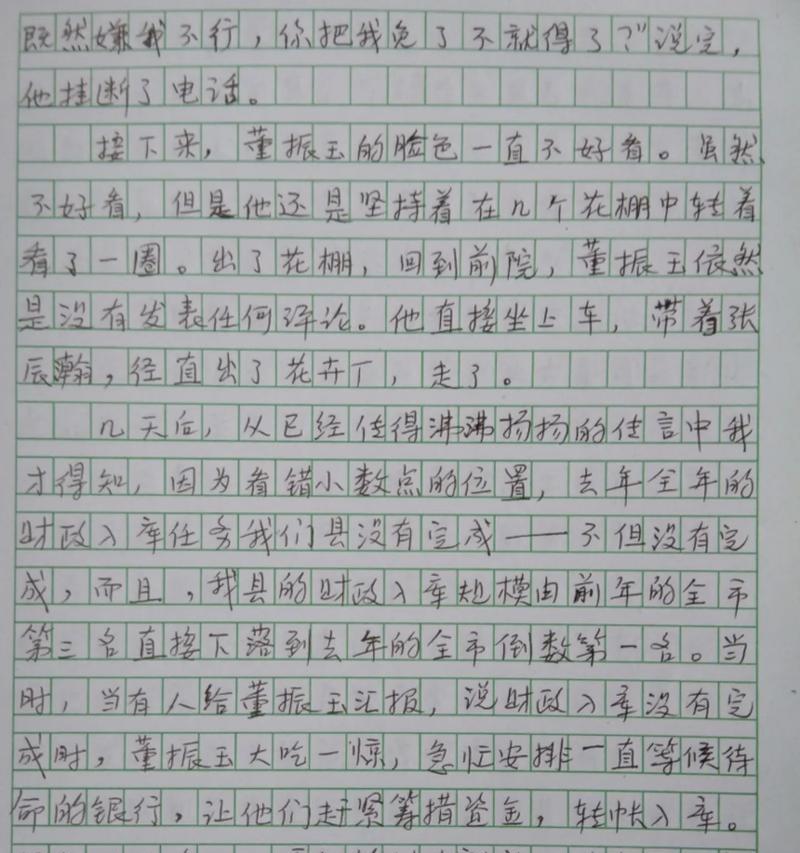 既然嫌我不行，你把我免了不就得了？”说完，
他挂断了电话。
接下来，董振玉的脸色一直不好看。虽然
不好看，但是他还是坚持着在几个花棚中转着
看了一圈。出了花棚，回到前院，董振玉依然
是没有发表任何评论。他直接坐上车，带着张
辰瀚，径直出了花卉厂，走了。
几天后，从已经传得沸沸扬扬的传言中我
才得知，因为看错小数点的位置，去年全年的
财政入库任务我们县没有完成——不但没有完
成，而且，我县的财政入库规模由前年的全市
第三名直接下落到去年的全市倒数第一名。当
时，当有人给董振玉汇报，说财政入库没有完
成时，董振玉大吃一惊，急忙安排一直等候待
命的银行，让他们赶紧筹措资金，转帐入库。